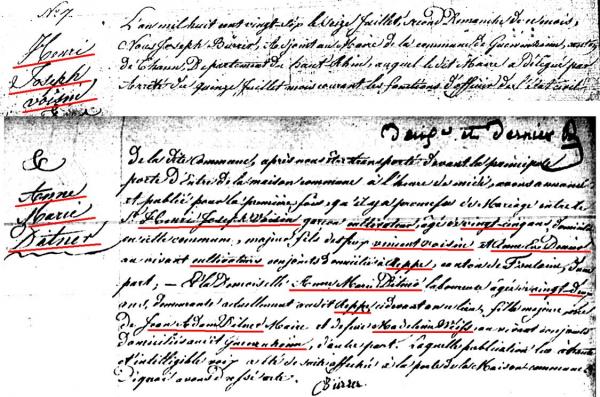 N.º 7.
Henri
Joseph
Voisin
L'an mil huit cent vingt sept le Seize Juillet, second Dimanche de ce mois,
Nous Joseph Bürrer, Adjoint au Maire de la commune de Guewenheim, canton
de Thann, Département du haut Rhin, auquel le dit Maire a délégué par
Arrêté du quinze Juillet mois courant les fonctions d'officier de l'état civil
et dernier
&
Anne
Marie
Ditner
de la dite Commune, après nous être transporté devant la principale
porte d'Entrée de la maison commune à l'heure de midi, avons annoncé
et publié pour la première fois qu'il y a promesse de Mariage entre le
Sr. Henri Joseph Voisin garçon cultivateur, âgé de vingt cinq ans, domicilié
en cette commune, majeur, fils des feux Vincent Voisin &
au vivant cultivateurs conjoints domiciliés à Joppe, canton de Fontaine, d'une
part; — Et la Demoiselle Anne Marie Ditner laboureuse âgée de vingt deux
ans, demeurante actuellement audit Joppe, fille majeure
de Jean Adam Ditner Maire et defunte Madeleine au vivant conjoints
domiciliés audit Guewenheim, d'autre part. Laquelle publication lue à haute
et intelligible voix a été de suite affichée à la porte de la Maison commune
Dequoi avons dressé acte.
Bürrer